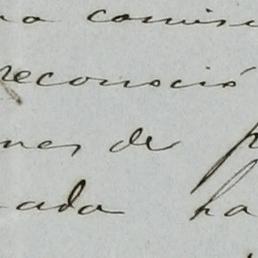 na comisi
reconoció
nes de p
ada ha